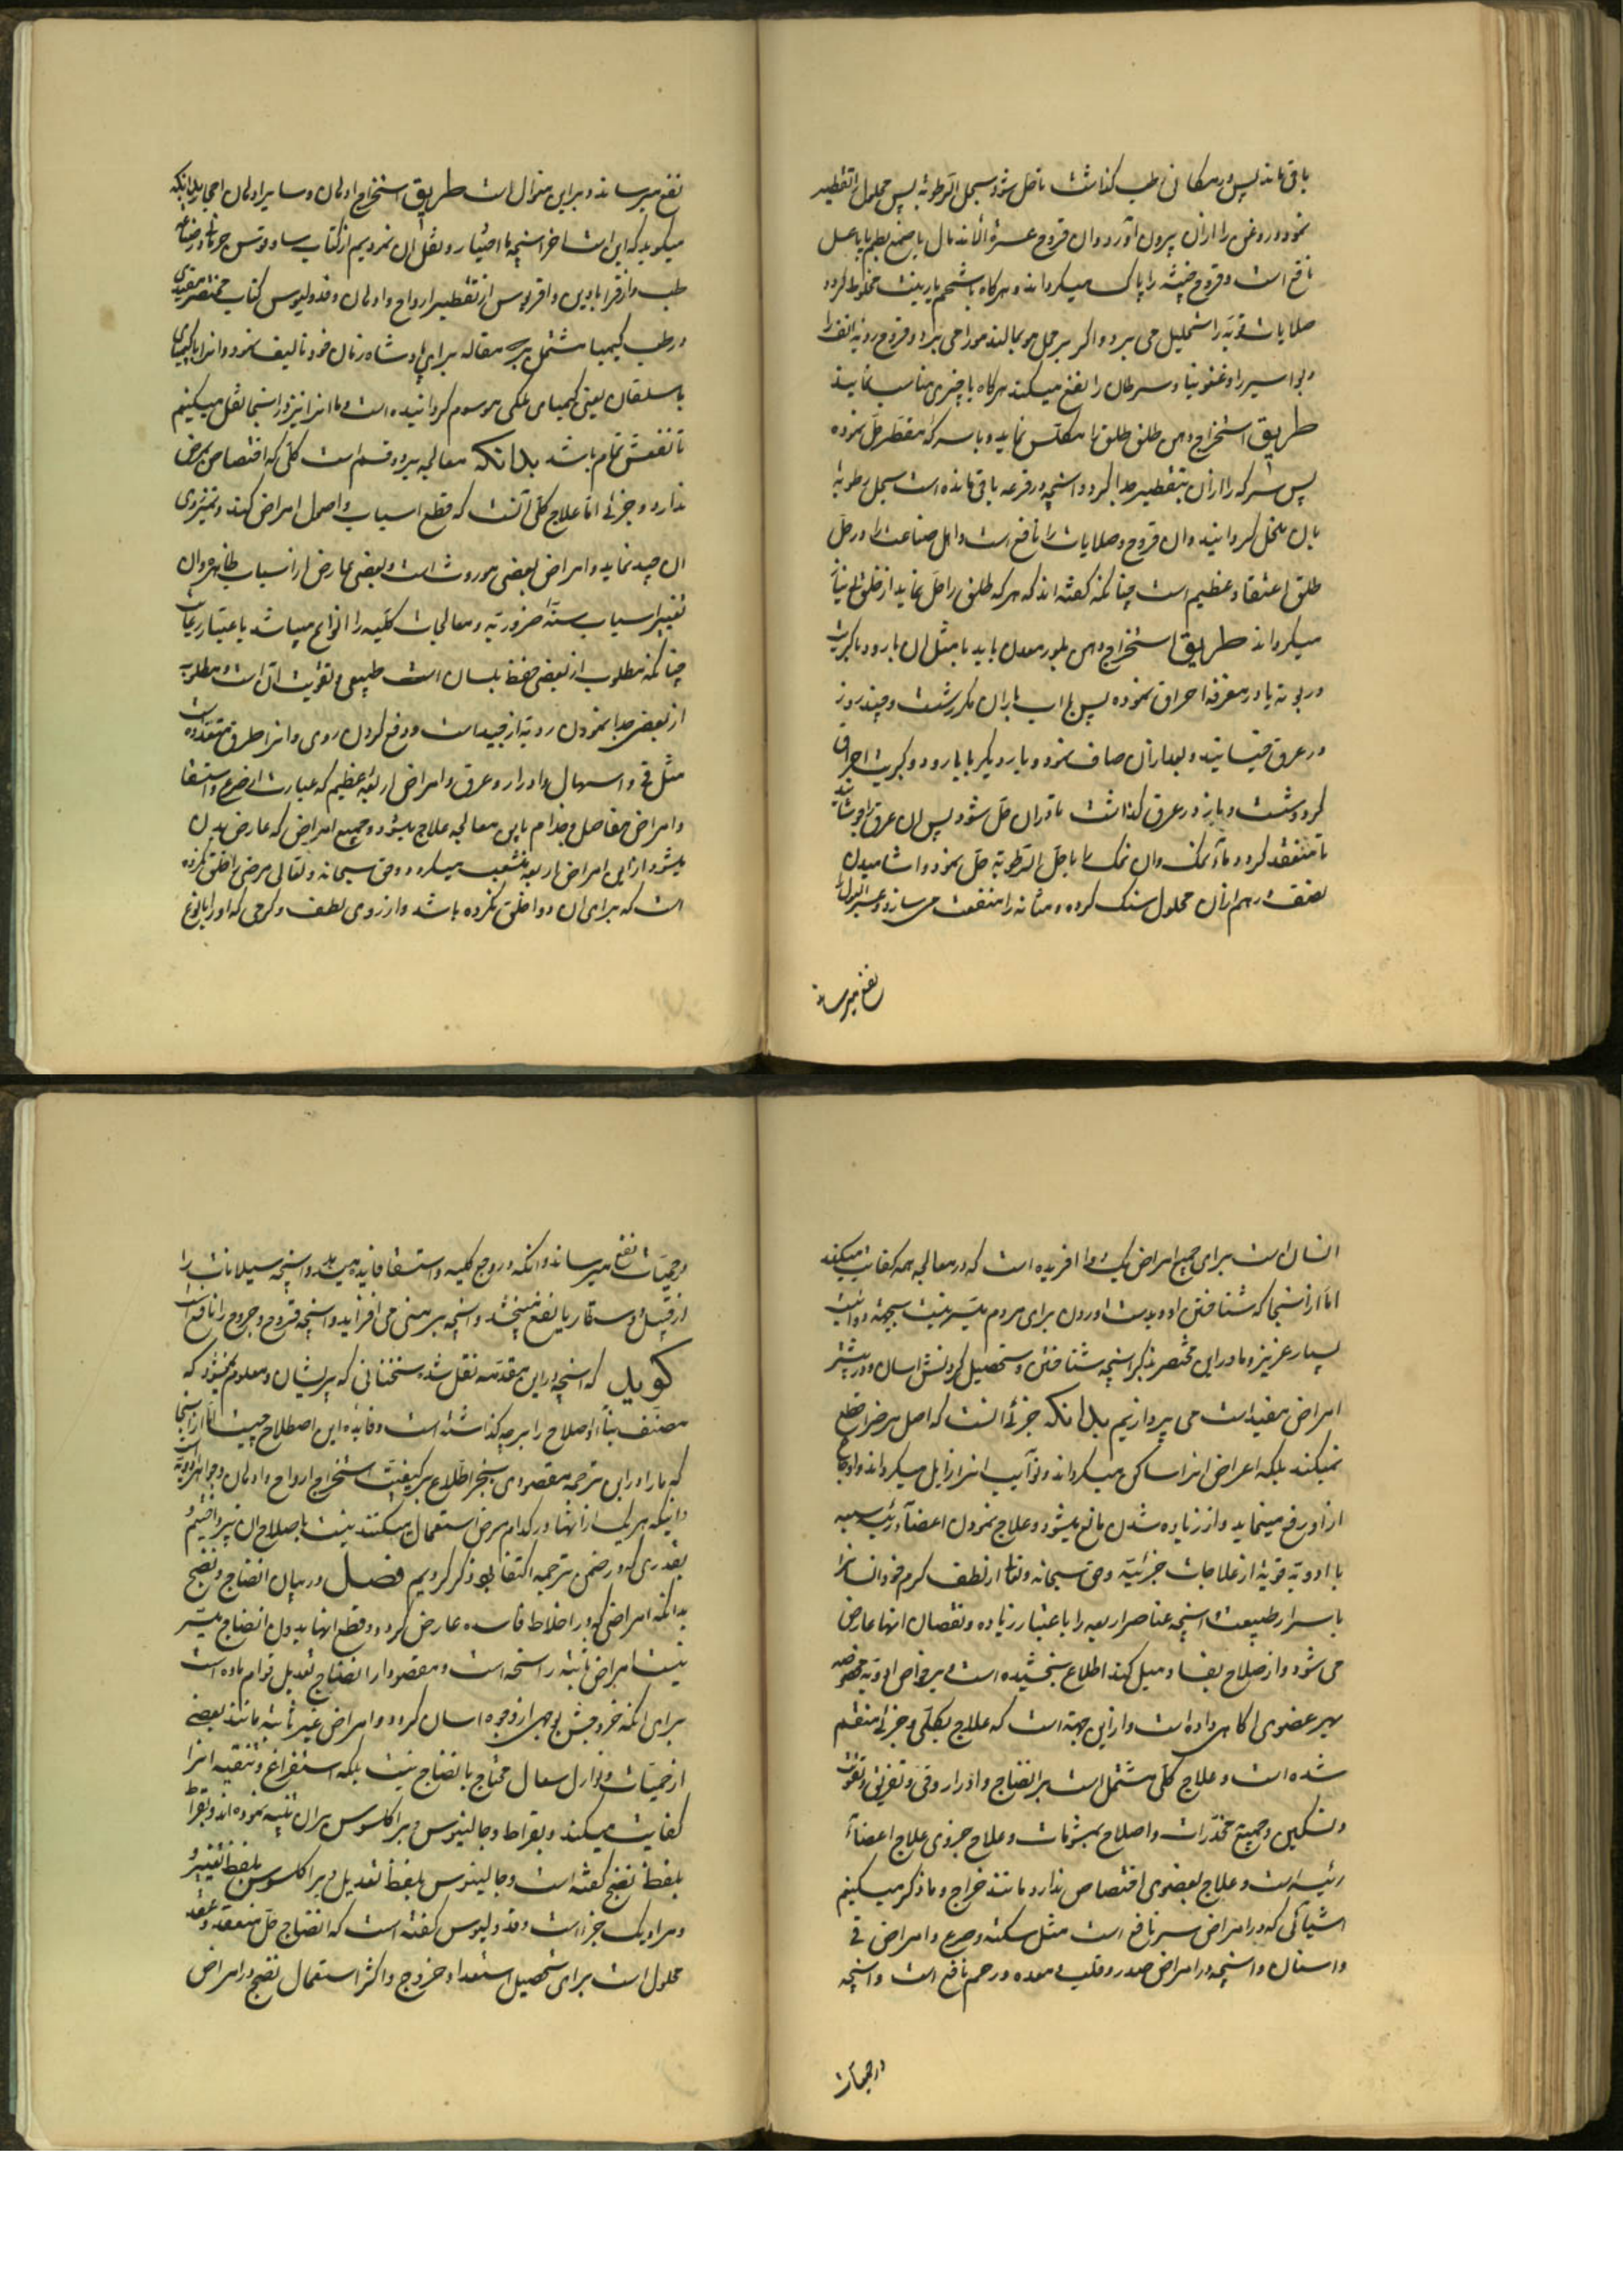 باقی ماند پس در مکان رطب گذاشت تا حل شود بسجل الرطوبة پس محلول را تقطیر
نمود و روغن را ازان بیرون آورد و ان قروح عسرة الاندمال با صمغ بطم یا با عسل
نافع است و قروح خبیثه را پاک میگرداند و هرگاه با شحم یا زیت مخلوط گردد
صلابات قویه را تحلیل می برد و اگر بر محل مو بمالند مو را می برد و قروح ردیه انف را
و بواسیر را و غنغرینا و سرطان را نفع میکند هرگاه با چیزی مناسب نمایند
طریق استخراج دهن طلق طلق را مکلس نماید و با سرکه مقطر حل نموده
پس سرکه را ازان بتقطیر جدا کرد و انچه در قرعه باقی مانده است بسجل رطوبة
بان منحل گردانیده و ان قروح و صلابات را نافع است و اهل صناعت را در حل
طلق اعتقاد عظیم است چنانکه گفته اند که هر که طلق را حل نماید از خلق بی نیاز
میگرداند طریق استخراج دهن بلور معدن باید با مثل ان بارود یا کبریت
در بوته یا در مغرفه احراق نموده پس با اب باران مکرر شست و چند روز
در عرق خیسانید و بعد ازان صاف نمود و بار دیگر با بارود و کبریت احراق
کرد و شست و باز در عرق گذاشت تا دران حل شود پس ان عرق را جوشانید
تا منعقد گردد مانند نمک وان نمک را با حل الرطوبة حل نمود و اشامیدن
نصف درهم ازان محلول سنگ گرده و مثانه را منفعت می سازد و عسر البول را
نفع میرساند
نفع میرساند و براین منوال است طریق استخراج ادهان و سایر ادهان احجار بدانکه
میگوید که این است اخر انچه با اختیار و نقل ان نمودیم از کتاب
طب و از قرابادین و اقربوس از تقطیر ارواح و ادهان و قدولیوس کتاب مختصر مفیدی
در طب کیمیا مشتمل بر سه مقاله برای پادشاه زمان خود تالیف نمود و انرا
باسلقان یعنی کیمیای ملکی موسوم گردانیده است و ما انرا نیز در اینجا نقل میکنیم
تا نفعش تمام باشد بدانکه معالجه بر دو قسم است کلی که اختصاص بمرض
ندارد و جزئی اما علاج کلی آنست که قطع اسباب و اصول امراض کند و تمیز روی
ان جید نماید و امراض بعضی موروث است و بعضی عارض از اسباب ظاهره وان
تغییر اسباب سته ضروریه و معالجات کلیه را انواع میباشد باعتبار غایات
چنانکه مطلوب از بعضی حفظ بلسان است طبیعی و تقویت ان است و مطلوب
از بعضی جدا نمودن ردیه از جید است و دفع کردن ردی و انرا طرق متعدده است
مثل قی و اسهال و ادرار و عرق و امراض اربعه عظیم که عبارت از صرع و استسقا
و امراض مفاصل و جذام باین معالجه علاج میشود و جمیع امراض که عارض بدن
میشود ازین امراض اربعه منشعب میگردد و حق سبحانه و تعالی مرضی را خلق نکرده
است که برای ان دوا خلق نکرده باشد و از روی لطف و کرمی که او را با نوع
انسان است برای جمیع امراض یک دوا افریده است که در معالجه همه کفایت میکند
اما از انجا که شناختن او و بدست اوردن برای مردم میسر نیست بجهة دوائیت
بسیار عزیز و ما در این مختصر بذکر انچه شناختن و تحصیل کردنش اسان و در بیشتر
امراض مفید است می پردازیم بدانکه جزئی انست که اصل مرض را قطع
نمیکند بلکه اعراض انرا ساکن میگرداند و نوآیب انرا زایل میگرداند و اوجاع
از او رفع مینماید و از زیاده شدن مانع میشود و علاج نمودن اعضآء رئیسه
با ادویه قویة از علاجات جزئیة و حق سبحانه و تعالی از لطف کرم خود انسانرا
باسرار طبیعت انچه عناصر اربعه را باعتبار زیاده و نقصان انها عارض
می شود و از صلاح بفساد میل کند اطلاع بخشیده است و بر خواص ادویه مخصوصه
بهر عضوی اکاهی داده است و ازین جهة است که علاج بکلی و جزئی منقسم
شده است و علاج کلی مشتمل است بر انضاج و ادرار و قی و تعریق و تقویت
و تسکین و جمیع مخدرات و اصلاح بمشومات و علاج جزوی علاج اعضاء
رئیسه است و علاج بعضوی اختصاص ندارد مانند خراج و ما ذکر میکنیم
اشیائی که در امراض سر نافع است مثل سکته و صرع و امراض قی
و اسنان و انچه در امراض صدر و قلب و معده و رحم نافع است و انچه
در حمیات
در حمیات نفع میرساند و انکه در وجع کلیه و استسقا فایده میدهد و انچه سیلانات را
از قبیل دوسنتاریا نفع میبخشد و انچه بر منی می افزاید و انچه قروح و جروح را نافع است
گوید که انچه در این مقدمه نقل شد سخنانی که پریشان و معلوم نمیشود که
مصنف بنآء اصلاح را بر چه گذاشته است و فایده این اصطلاح چیست اما از انجا
که ما را در این ترجمه مقصودی بجز اطلاع بر کیفیت استخراج ارواح و ادهان و جواهر ادویه است
و اینکه هر یک از انها در کدام مرض استعمال میکنند نیست باصلاح ان نپرداختیم و
بقدری که در ضمن ترجمه اکتفا بود ذکر کردیم فصل در بیان انضاج و نضج
بدانکه امراضی که از اخلاط فاسده عارض گردد و قطع انها بدون انضاج میسر
نیست امراض ثابته راسخه است و مقصود از انضاج تعدیل قوام ماده است
برای انکه خروجش بوجهی از وجوه اسان گردد و امراض غیر ثابته مانند بعضی
از حمیات و نوازل سعال محتاج بانضاج نیست بلکه استفراغ و تنقیه انرا
کفایت میکند و بقراط و جالینوس و براکلسوس بران تنبیه نموده اند و بقراط
بلفظ نضج گفته است و جالینوس بلفظ تعدیل و براکلسوس بلفظ تغییر و
و مراد یک چیز است و قدولیوس گفته است که انضاج حل منعقد و عقد
محلول است برای تحصیل استعداد خروج و اکثر استعمال نضج در امراض